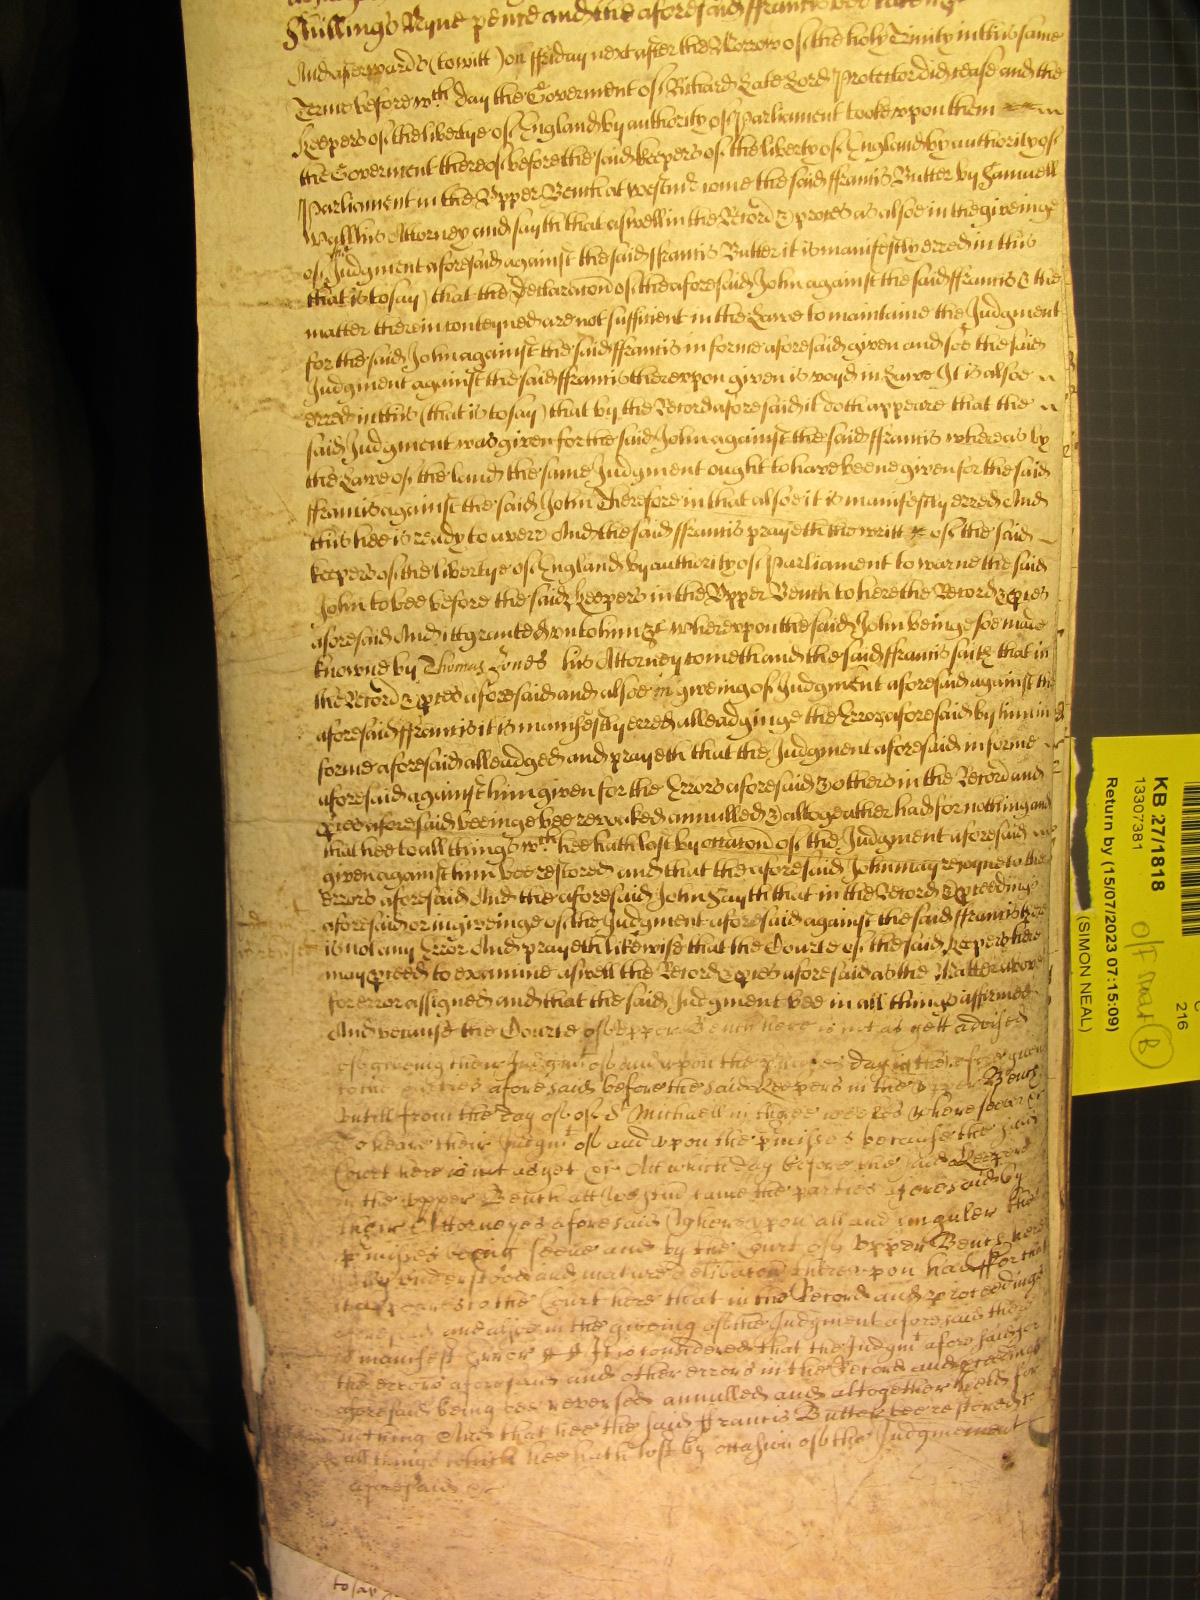 Shillings Nyne pence and the aforesaid ffrancis bee
And afterwards (to witt) on ffriday next after the Morrow of the holy Trinity in this same
Terme before wch day the Goverment of Richard Late Lord Protector did cease and the
Keepers of the libertye of England by authority of Parliament tooke upon them
the Goverment thereof before the said keepers of the liberty of England by authority of
Parliament in the Upper Bench at Westmr come the said ffrancis Butter by Samuell
Wall his Attorney and sayth that aswell in the Record & proces as alsoe in the giveinge
of the Judgment aforesaid against the said ffrancis Butter it is manifestly erred in this
that is to say) that the Declaracon of the aforesaid John against the said ffrancis & the
matter therein conteyned are not sufficient in the Lawe to maintaine the Judgment
for the said John against the said ffrancis in forme aforesaid given and soe the said
Judgment against the said ffrancis thereupon given is voyd in Lawe It is alsoe
erred in this (that is to say) that by the Record aforesaid it doth appeare that the
said Judgment was given for the said John against the said ffrancis whereas by
the Lawe of the land the same Judgment ought to have beene given for the said
ffrancis against the said John Therefore in that alsoe it is manifestly erred And
this hee is ready to averr And the said ffrancis prayeth the writt of the said
keepers of the libertye of England by authority of Parliament to warne the said
John to bee before the said keepers in the Upper Bench to here the Record & pces
aforesaid And itt granted unto him &c whereupon the said John beinge soe made
knowne by Thomas Jones his Attorney cometh and the said ffrancis saith that in
the Record & pces aforesaid and alsoe in giveing of Judgment aforesaid against the
aforesaid ffrancis it is manifestly erred alleadginge the Error aforesaid by him in
forme aforesaid alleadged and prayeth that the Judgment aforesaid in forme
aforesaid against him given for the Errors aforesaid & others in the Record and
pces aforesaid beeinge bee revoked annulled & altogeather had for nothing and
that hee to all things wch hee hath lost by occacon of the Judgment aforesaid
given against him bee restored and that the aforesaid John may rejoyne to the
errors aforesaid And the aforesaid John Sayth that in the Record & pceedings
aforesaid or in giveinge of the Judgment aforesaid against the said ffrancis there
is not any Error And prayeth likewise that the Courte of the said keepers here
may pceed to examine aswell the Record & pces aforesaid as the Matter above
for error assigned and that the said Judgment bee in all things affirmed
And because the Courte of Upper Bench here is not as yett advised
of giveing their Judgmt of and upon the pmisses day is therefore given
to the parties aforesaid before the said Keepers in the Upper Bench
untill from the day of St Michaell in three weekes wheresoever &c
To heare their Judgmt of and upon the pmisses because the said
Court here is not as yet &c Att which day before the said Keepers
in the upper Bench att Westmr came the parties aforesaid by
their Attorneyes aforesaid Whereupon all and singuler the
pmisses being seene and by the Court of Upper Bench here
fully understood and mature deliberacon thereupon had ffor that
itt appeares to the Court here that in the Record and proceedings
aforesaid and alsoe in the giveing of the Judgment aforesaid there
is manifest error It is considered that the Judgmt aforesaid for
the errors aforesaid and other errors in the Record and pceedings
aforesaid being bee reversed annulled and altogether held for
nothing And that hee the said ffrancis Butter bee restored to
all things which hee hath lost by occasion of the Judgement
aforesaid &c
to say
KB 27/1818
13307381
Return by (15/07/2023 07:15:09)
(SIMON NEAL)
216